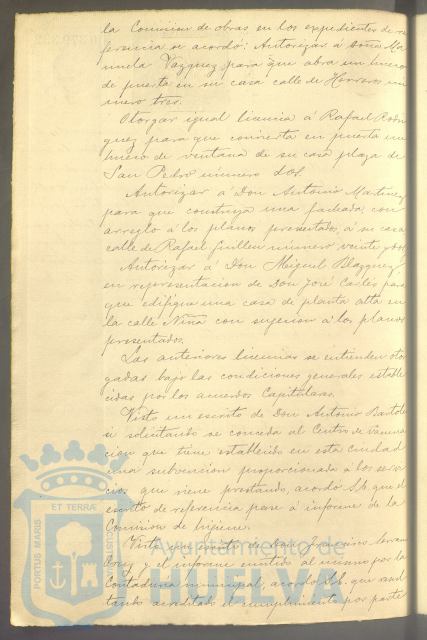 la Comision de obras en los expedientes de re
ferencia se acordó: Autorizar á doña Ma
nuela Vazquez para que abra un hueco
de puerta en su casa calle de Herreros nú
mero tres.
Otorgar igual licencia á Rafael Rodri
guez para que convierta en puerta un
hueco de ventana de su casa plaza de
San Pedro número dos.
Autorizar á Don Antonio Martinez
para que construya una fachada, con
arreglo á los planos presentados, á su casa
calle de Rafael Guillen número veinte y dos.
Autorizar á Don Miguel Blazquez,
en representacion de Don José Cortés para
que edifique una casa de planta alta en
la calle Niña con sujecion á los planos
presentados.
Las anteriores licencias se entienden otor
gadas bajo las condiciones generales estable
cidas por los acuerdos Capitulares.
Visto un escrito de Don Antonio Bartole
si solicitando se conceda al Centro de vacuna
cion que tiene establecido en esta ciudad
una subvencion proporcionada á los servi
cios que viene prestando, acordó S.S. que el
escrito de referencia pase á informe de la
Comision de higiene.
Visto un escrito de Don Francisco
y el informe emitido al mismo por la
Contaduria municipal, acordó S.S. que resul
tando acreditado el cumplimiento por parte
PORTUS MARIS ET TERRAE CUSTODIA
Ayuntamiento de
HUELVA